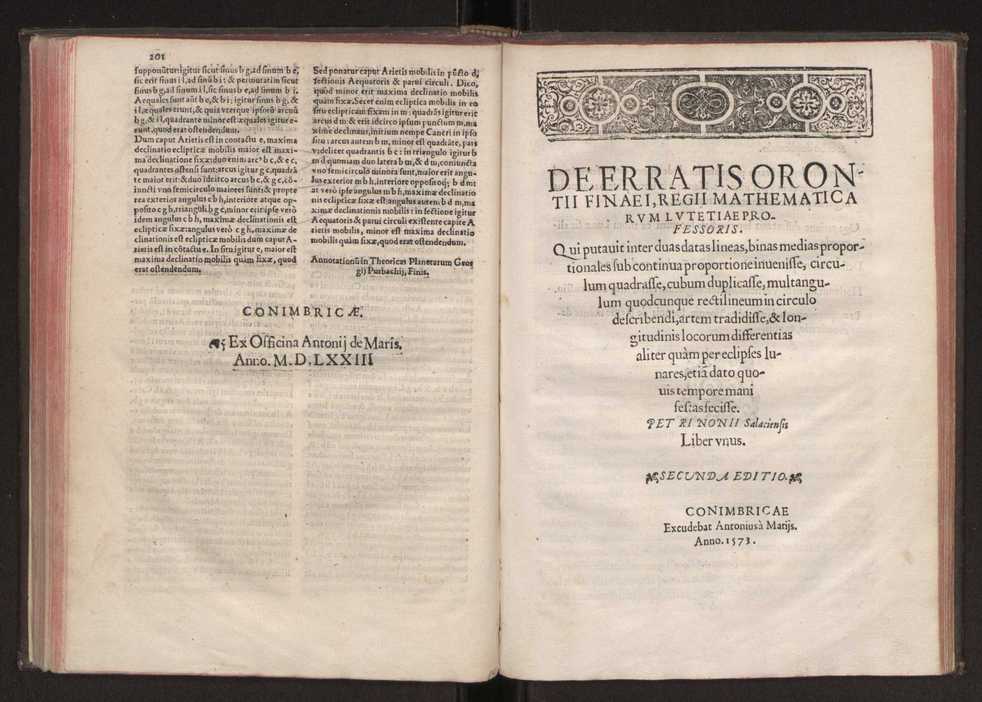 201
supponũtur: igitur sicut sinus b g, ad sinum b e,
sic erit sinus i l, ad sinũ b i: & permutatim sicut
sinus b g, ad sinum i l, sic sinus b e, ad sinum b i.
Aequales sunt aũt b e, & b i: igitur sinus b g, &
i l, æquales erunt, & quia vterque ipsorũ arcuũ
h g, & i l, quadrante minor est æquales igitur e-
runt, quod erat ostendendum.
Dum caput Arietis est in contactu e, maxima
declinatio eclipticæ mobilis maior est maxi-
ma declinatione fixæ: duo enim arcꝰ b c, & e c,
quadrantes ostensi sunt: arcus igitur g c, quadrã
te maior erit: & duo idcirco arcus b c, & g c, cõ-
iuncti vno semicirculo maiores sunt: & propte
rea exterior angulus c b h, interiore atque op-
posito c g b, trianguli b g c, minor erit ipse verò
idem angulus c b h, maximæ declinationis est
eclipticæ fixæ: angulus verò c g b, maximæ de
clinationis est eclipticæ mobilis dum caput A-
rietis est in cõtactu e. In situ igitur e, maior est
maxima declinatio mobilis quàm fixæ, quod
erat ostendendum.
Sed ponatur caput Arietis mobilis in pũcto d,
sectionis Aequatoris & parui circuli. Dico,
quòd minor erit maxima declinatio mobilis
quàm fixæ. Secet enim ecliptica mobilis in eo
situ eclipticam fixam in m: quadrãs igitur erit
arcus d m: & erit idcirco ipsum punctum m, ma
ximè declinans, initium nempe Cancri in ipso
situ: arcus autem b m, minor est quadrãte, pars
videlicet quadrantis b c: in triangulo igitur b
m d quoniam duo latera b m, & d m, coniuncta
vno semicirculo minora sunt, maior erit angu-
lus exterior m b h, interiore opposito q; b d m:
at verò ipse angulus m b h, maximæ declinatio
nis eclipticæ fixæ est: angulus autem b d m, ma
ximæ declinationis mobilis: in sectione igitur
Aequatoris & parui circuli existente capite A
rietis mobilis, minor est maxima declinatio
mobilis quàm fixæ, quod erat ostendendum.
Annotationũ in Theoricas Planetarum Geor
gij Purbachij, Finis.
CONIMBRICÆ.
Ex Officina Antonij de Marîs.
Anno. M.D.LXXIII
DE ERRATIS ORON-
TII FINAEI, REGII MATHEMATICA
RVM LVTETIAE PRO-
FESSORIS.
Qui putauit inter duas datas lineas, binas medias propor-
tionales sub continua proportione inuenisse, circu-
lum quadrasse, cubum duplicasse, multangu-
lum quodcunque rectilineum in circulo
describendi, artem tradidisse, & lon-
gitudinis locorum differentias
aliter quàm per eclipses lu-
nares, etiã dato quo-
uis tempore mani
festas fecisse.
PETRI NONII Salaciensis
Liber vnus.
SECUNDA EDITIO.
CONIMBRICAE
Excudebat Antonius à Marijs.
Anno. 1573.